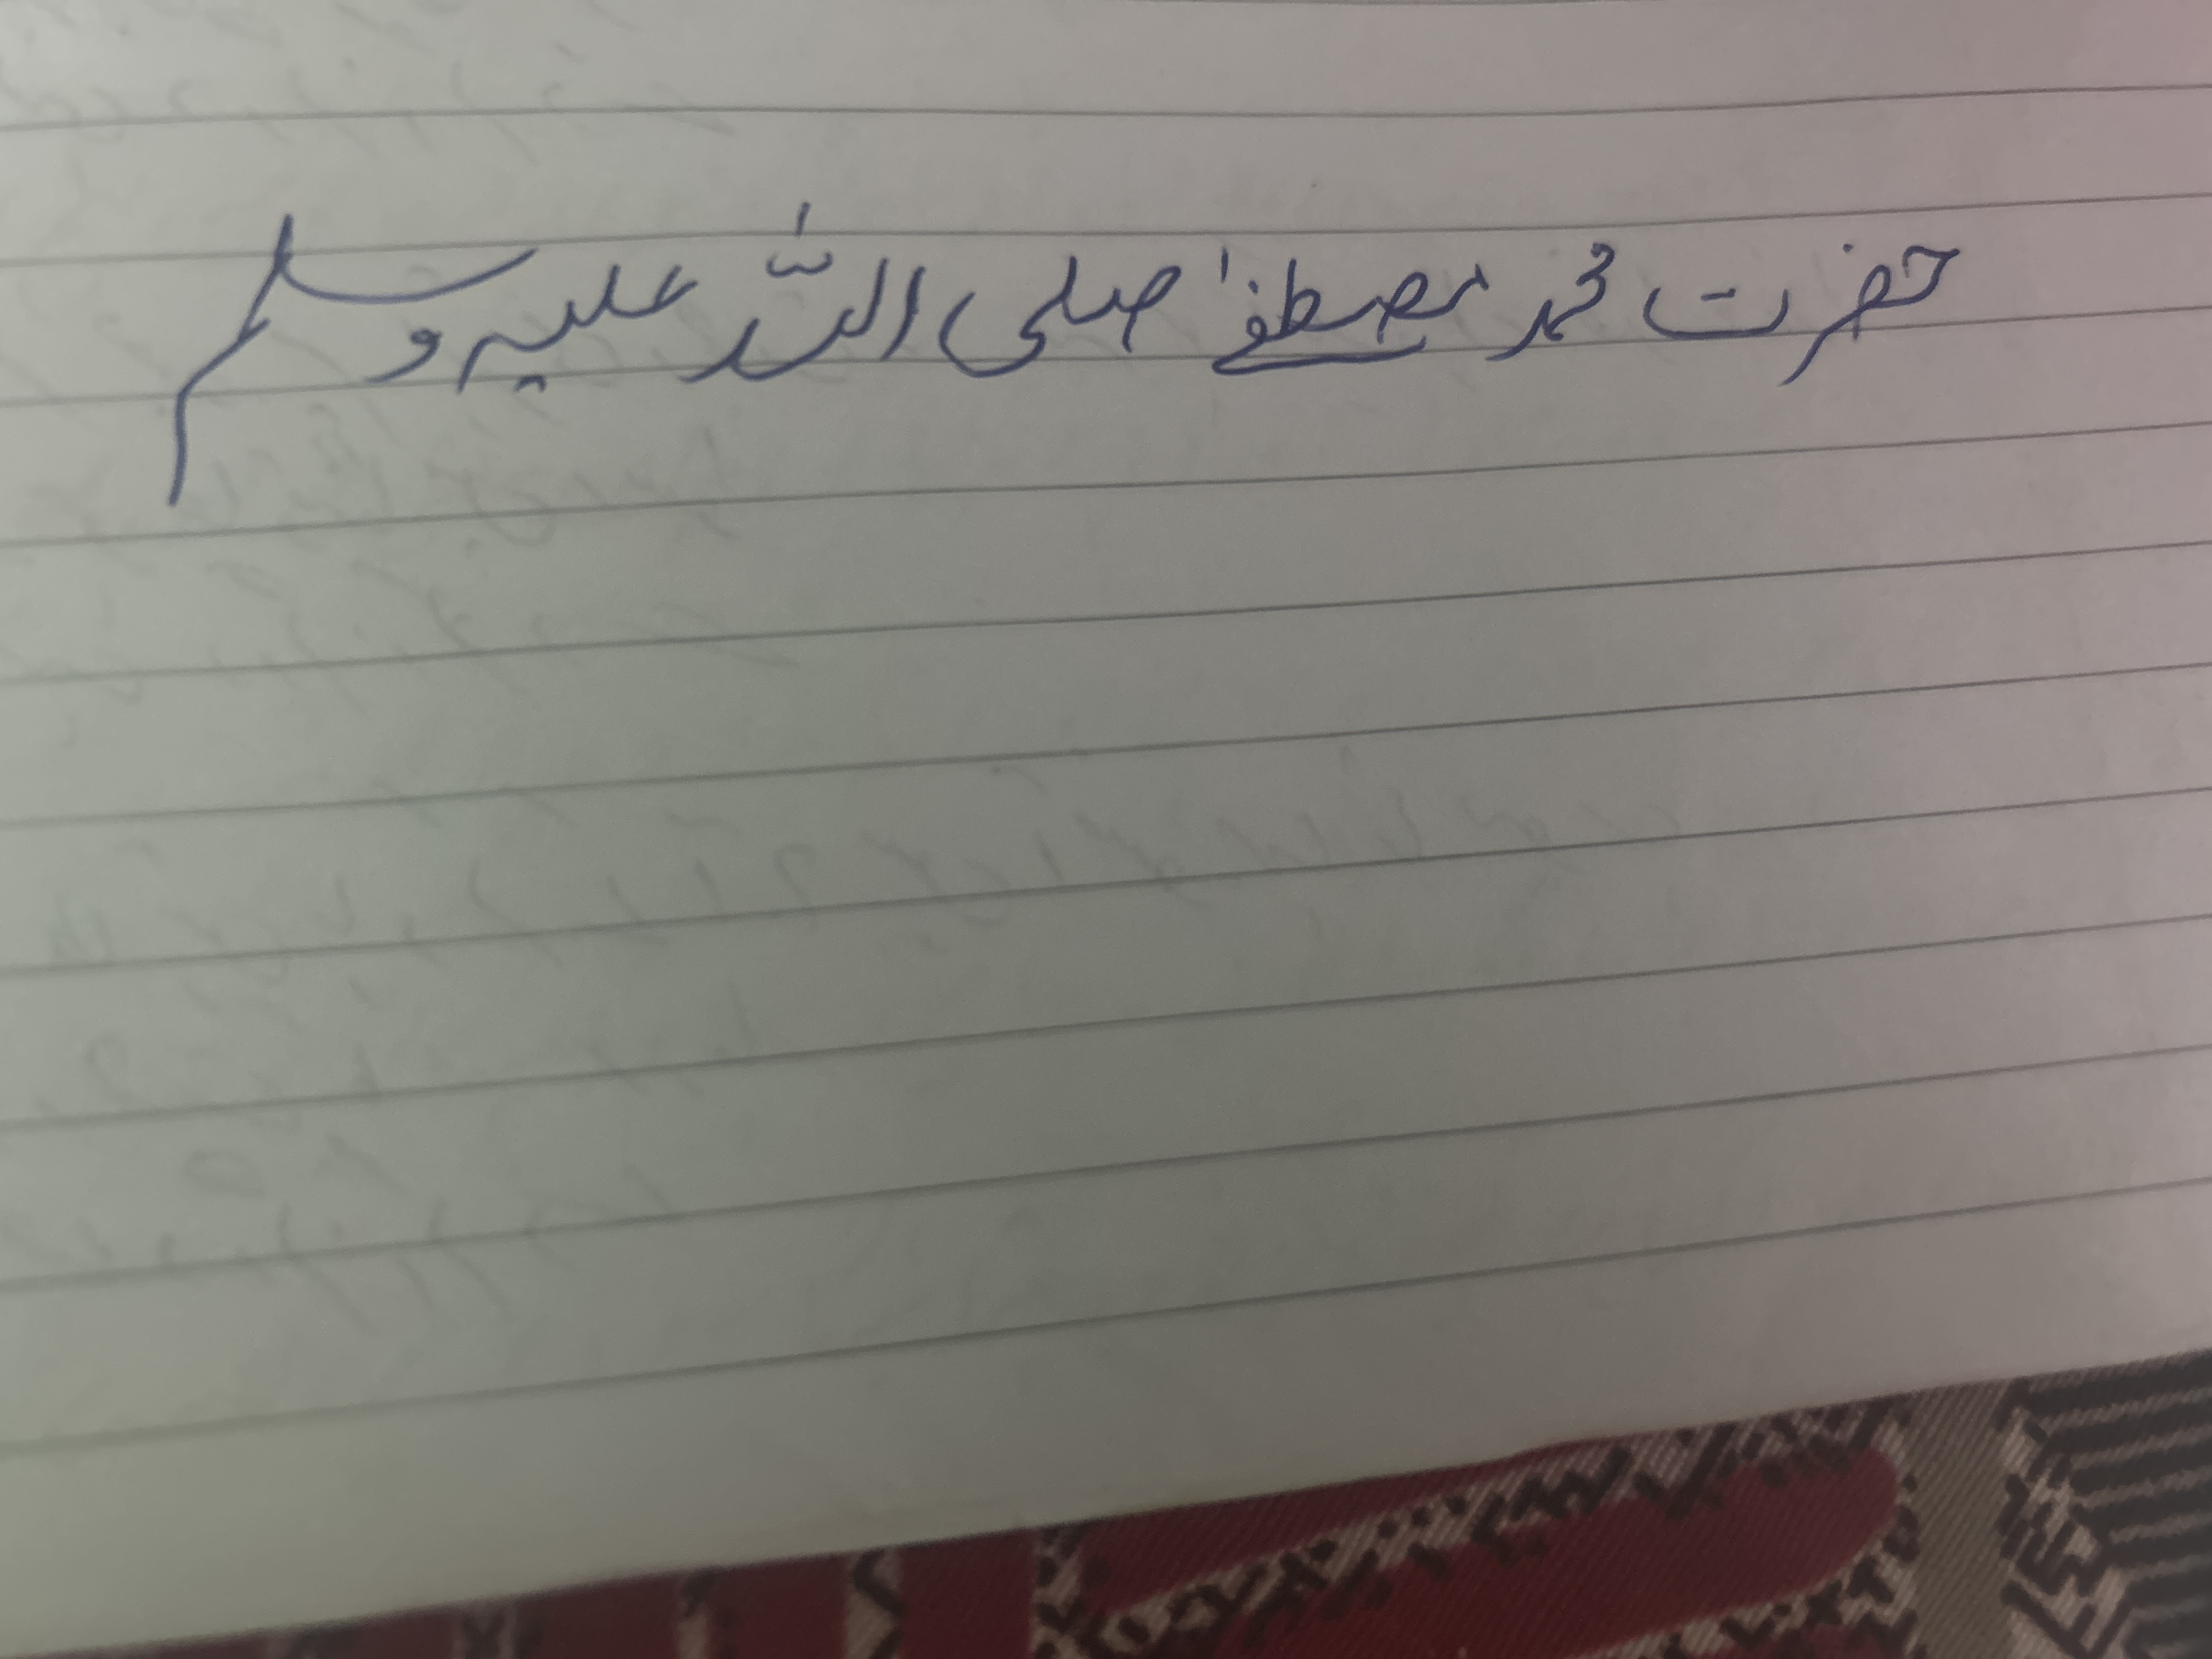 حضرت محمد مصطفےٰ صلی اللہ علیہ وسلم